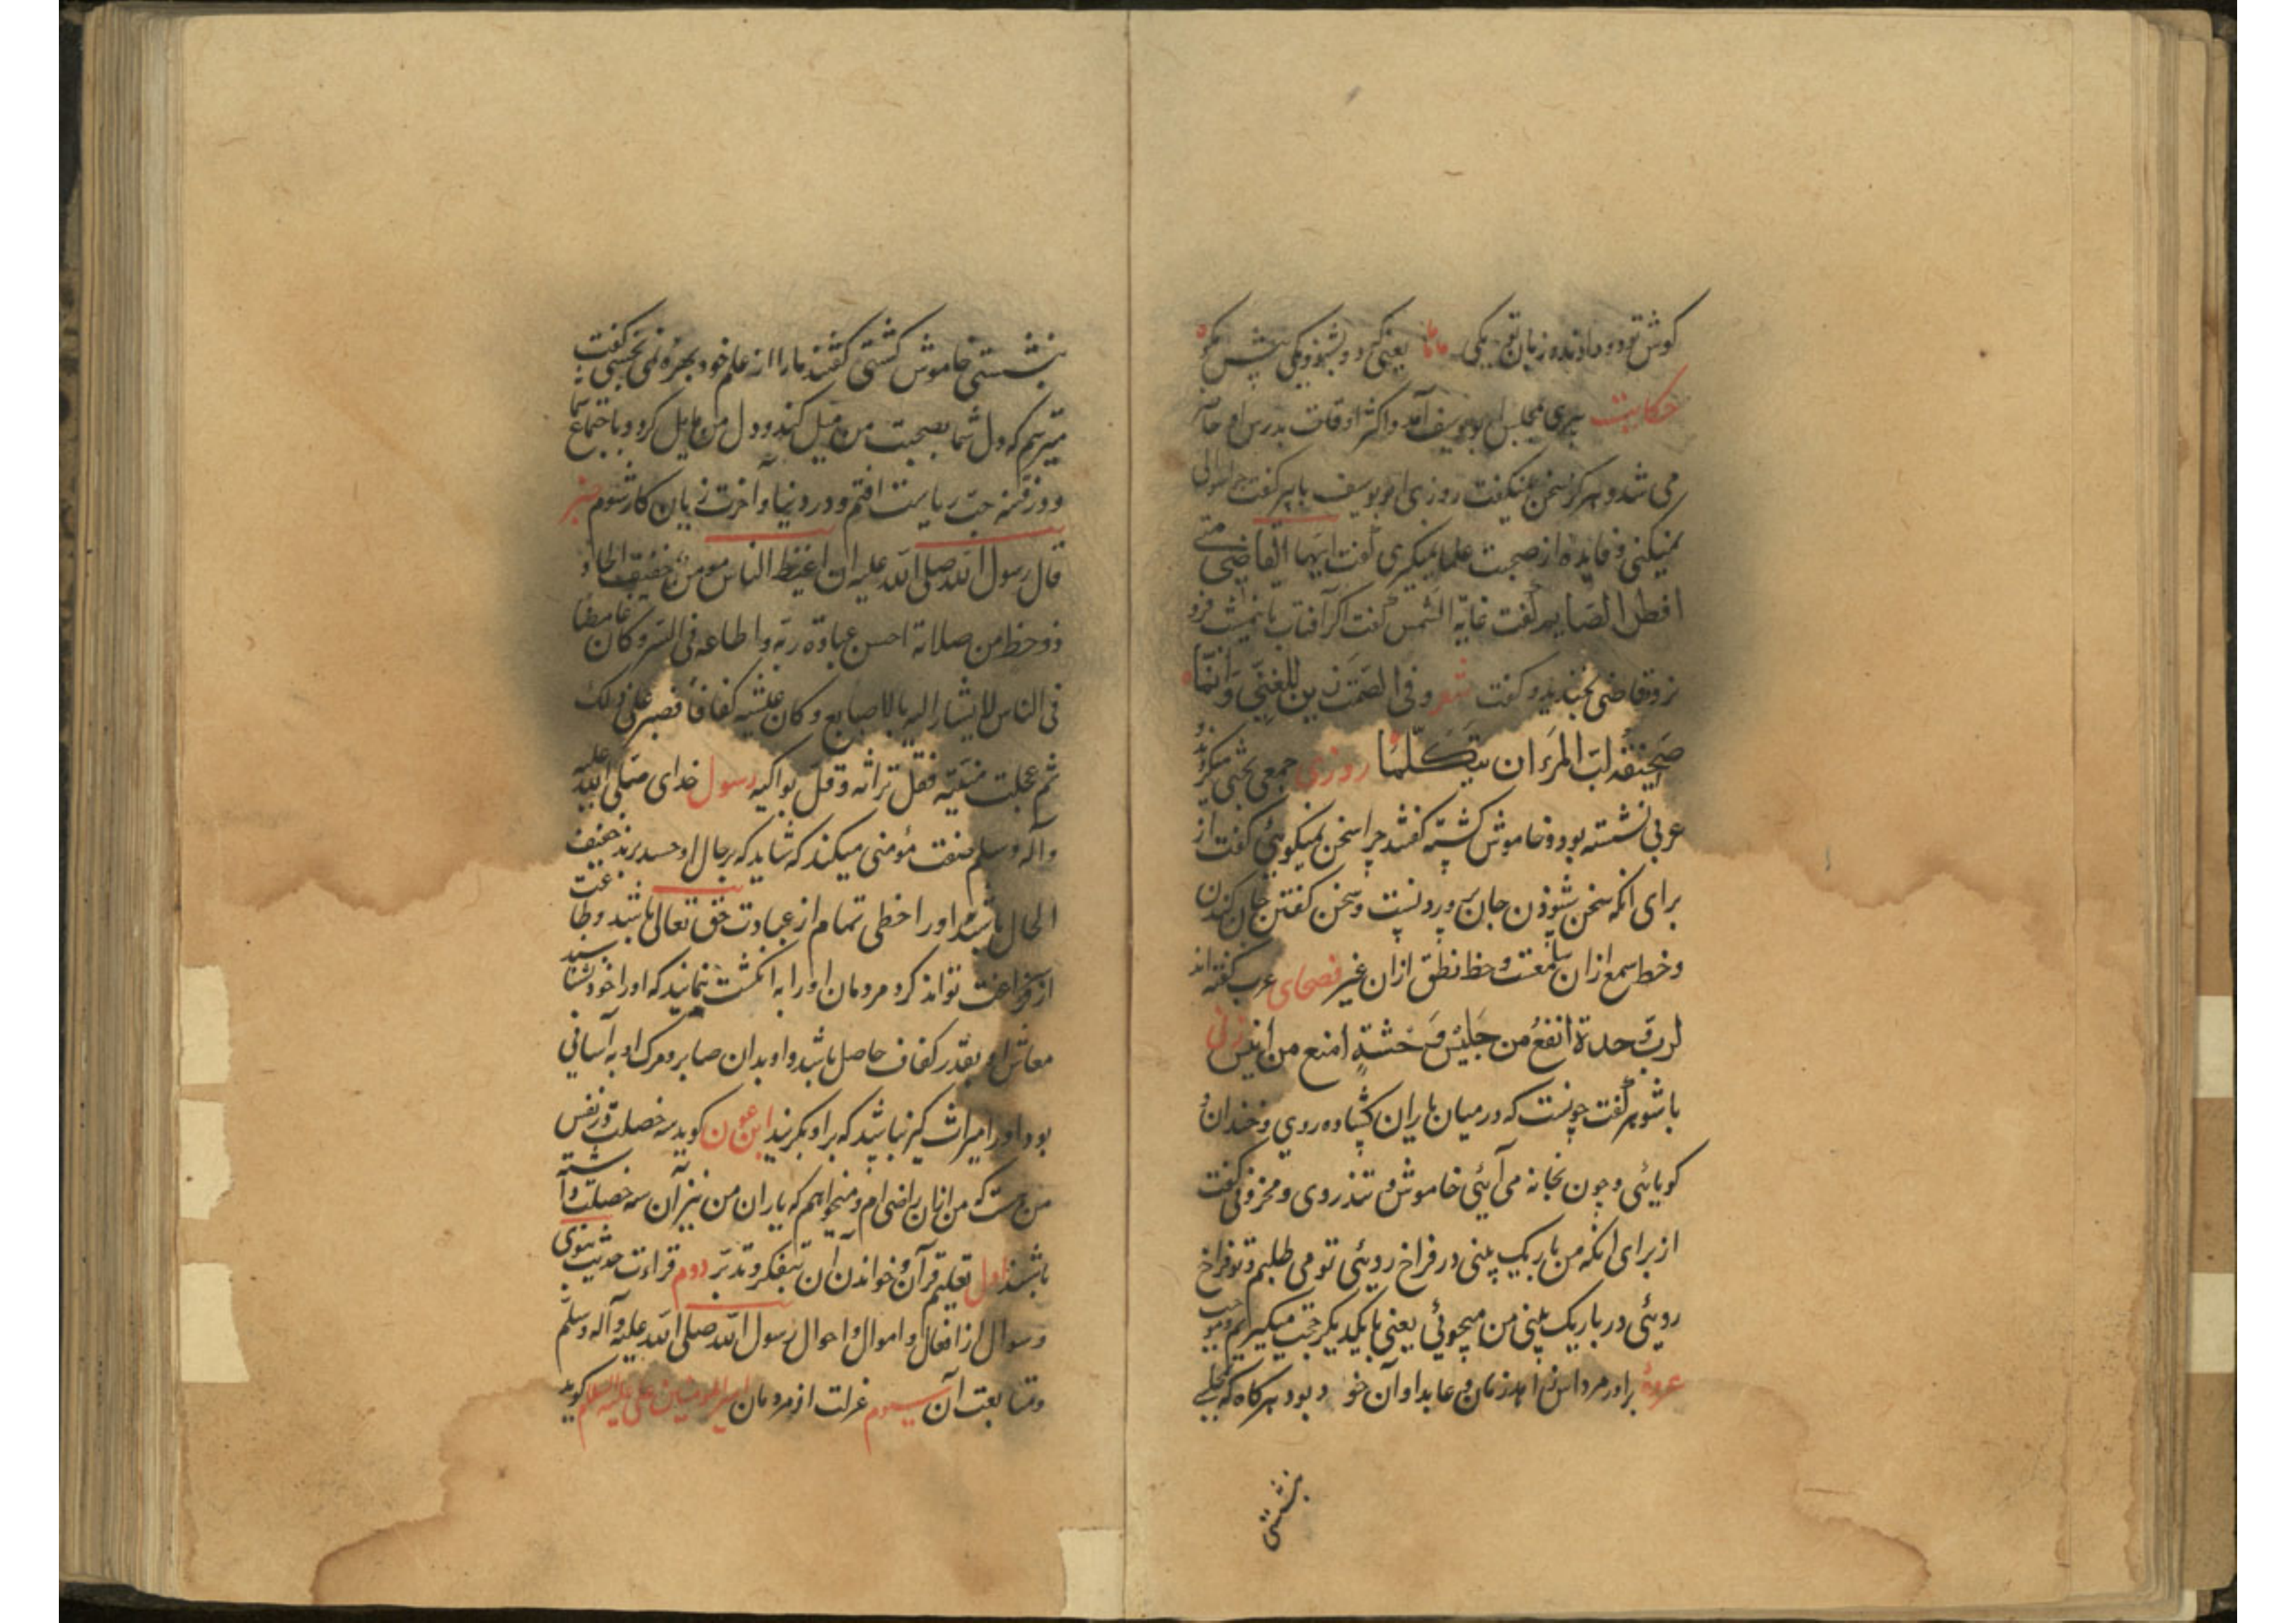 کوش تو دو دادند و زبان تو یکی یعنی که دو بشنو و یکی بیش مکو
حکایت پیری بمجلس ابو یوسف آمد و اکثر اوقات بدرس او حاضر
می شد و هرکز سخن نمیکفت روزی ابو یوسف با پیر کفت چرا سؤالی
نمیکنی و فایده از صحبت علما نمیکیری کفت ایها القاضی متی
افطر الصایم کفت غابة الشمس کفت اکر آفتاب تا نیمشب فرو
نرود قاضی بخندید و کفت شعر و فی الصمت زین للغبی و انما
صحیفة لب المرء ان یتکلما روزی جمعی بحثی میکردند و
عربی نشسته بود و خاموش کشته کفتند چرا سخن نمیکوئی کفت از
برای انکه سخن شنودن جان پروردنست و سخن کفتن جان کندن
و حظ سمع ازان سامعست و حظ نطق ازان غیر فصحای عرب کفته اند
لرب وحدة انفع من جلیس و وحشة امنع من انیس زنی
با شوهر کفت چونست که در میان یاران کشاده روی و خندان و
کویائی و چون بخانه می آیئی خاموش و تند روی و محزونی کفت
از برای انکه من باریک بینی در فراخ روئی تو می طلبم و تو فراخ
روئی در باریک بینی من میجوئی یعنی با یکدیکر حجت میکیریم و موجب
عروه برادر مرداس زاهد زمان و عابد اوان خود بود هرکاه که بمجلسی
بنشستی
بنشستی خاموش کشتی کفتند ما را از علم خود بهره نمی بخشی کفت
میترسم که دل شما بصحبت من میل کند و دل من مایل کردد باجتماع شما
و در فتنه حب ریاست افتم و در دنیا و آخرت زیان کار شوم خبر
قال رسول الله صلی الله علیه ان اغبط الناس مومن خفیف الحاذ
ذو حظ من صلاته احسن عبادة ربه و اطاعه فی السر و کان غامضا
فی الناس لا یشار الیه بالاصابع و کان عیشه کفافا فصبر علی ذلک
ثم عجلت منیته فقل تراثه و قل بواکیه رسول خدای صلی الله علیه
و آله و سلم صفت مؤمنی میکند که شاید که بر حال او حسد برند خفیف
الحال باشد و او را حظی تمام از عبادت حق تعالی باشد و طاعت
از فراغت تواند کرد مردمان او را به انکشت ننمایند که او را خود نشناسند
معاش او بقدر کفاف حاصل باشد و او بدان صابر و مرک او به آسانی
بود او را میراث کیر نباشد که بر او بکریند ابن عون کوید سه خصلت در نفس
من هست که من ازان راضی ام و میخواهم که یاران من نیز آن سه خصلت داشته
باشند اول تعلیم قرآن و خواندن آن بتفکر و تدبر دوم قراءت حدیث نبوی
و سوال از افعال و اموال و احوال رسول الله صلی الله علیه و آله و سلم
و متابعت آن سیوم عزلت از مردمان امیر المومنین علی علیه السلام کوید